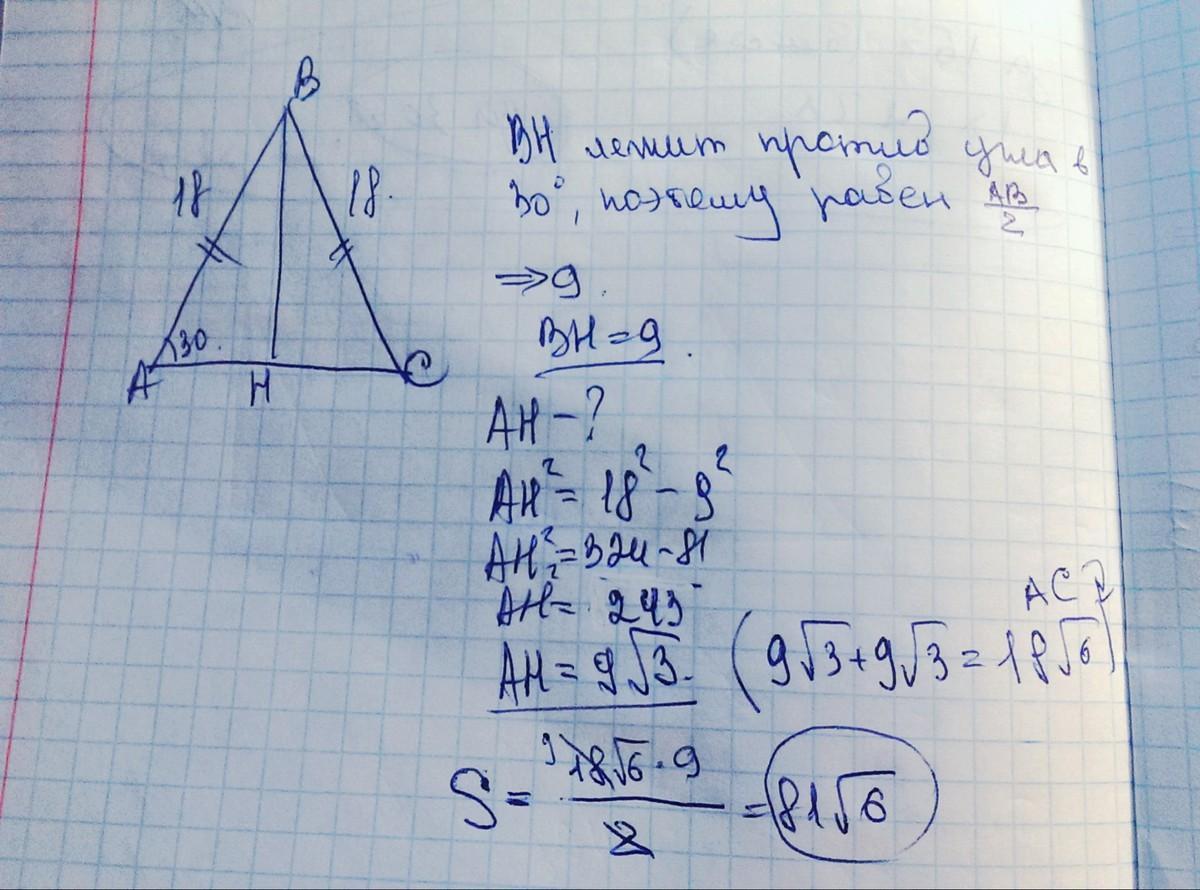 B
18
18.
30.
A
H
C
BH лежит против угла в
30°, поэтому равен AB/2
⇒ 9.
BH = 9.
AH - ?
AH² = 18² - 9²
AH² = 324 - 81
AH² = 243
AH = 9√3.
AC ?
(9√3 + 9√3 = 18√6)
S = 9 18√6 · 9 / 2 = 81√6